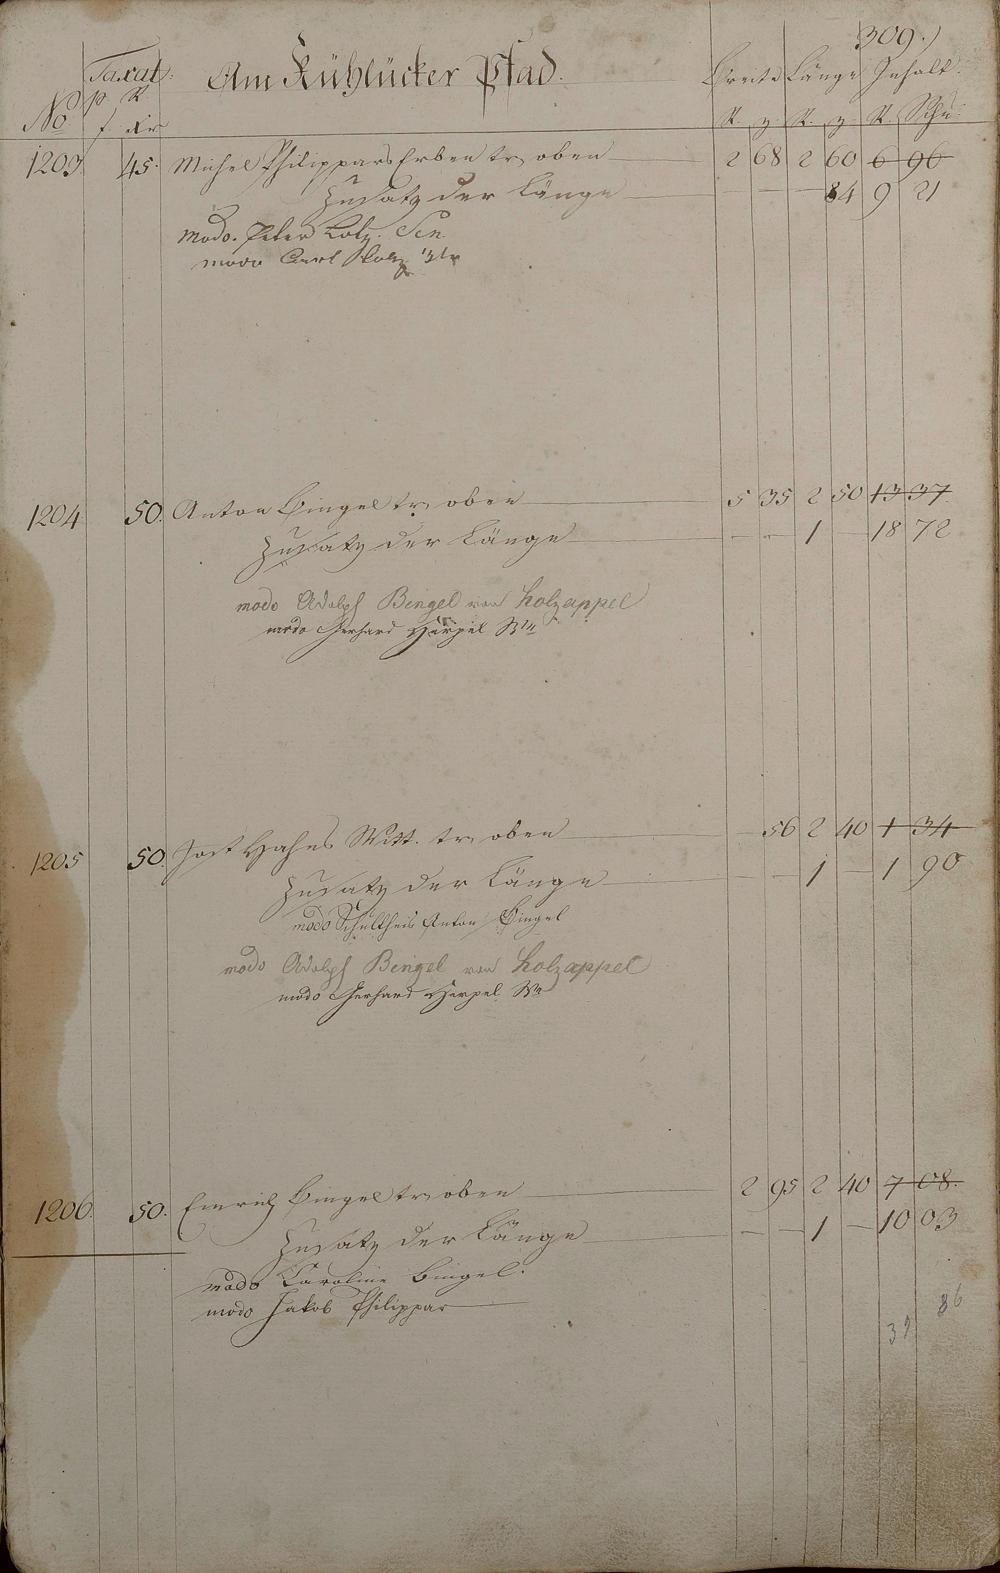 309.)
Taxat: Am Kühlücker Pfad. Breite Länge Inhalt.
No p R R. z R. z R. Schu
f. Kr
1203 45. Michel Philippars Erben tr. oben 2 68 2 60 6 96
Zusatz der Länge 84 9 21
modo. Peter Lotz. Sen
modo Carl Lotz
1204 50. Anton Bingel tr. oben 5 35 2 50 13 37
Zusatz der Länge 1 18 72
modo Adolph Bengel von Holzappel
modo Gerhard Herpel Wtw
1205 50. Jost Hahns Witt. tr. oben 56 2 40 1 34
Zusatz der Länge 1 1 90
modo Schultheis Anton Bingel
modo Adolph Bengel von Holzappel
modo Gerhard Herpel Wtw
1206. 50. Emrich Bingel tr. oben 2 95 2 40 7 08.
Zusatz der Länge 1 10 03
modo Caroline Bingel.
modo Jakob Philippar
39 86